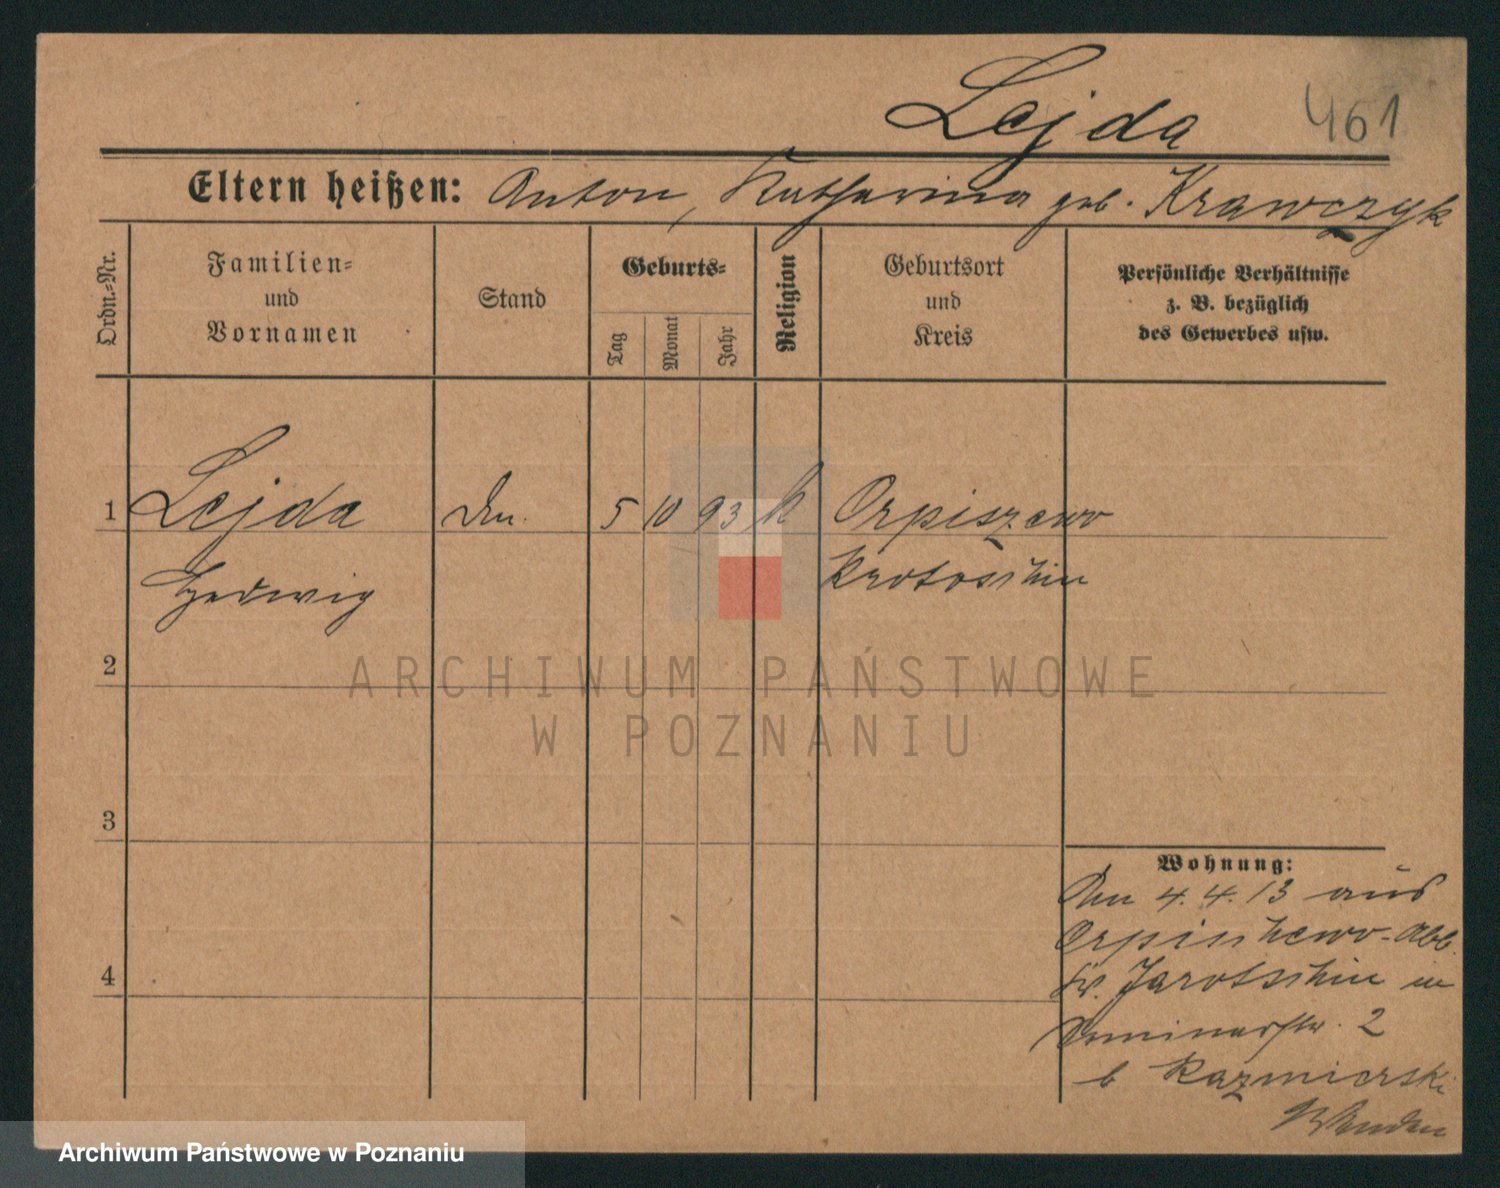 Lejda 461
Eltern heißen: Anton, Katharina geb. Krawczyk
Ordn.-Nr.
Familien-
und
Vornamen
Stand
Geburts-
Tag
Monat
Jahr
Religion
Geburtsort
und
Kreis
Persönliche Verhältnisse
z. B. bezüglich
des Gewerbes usw.
1 Lejda 5 10 93 k Orpiszewo
Hedwig Krotoschin
2
ARCHIWUM PAŃSTWOWE
W POZNANIU
3
4
Wohnung:
4.4.13 aus
Orpischewo-Abb.
Kr. Jarotschin in
2
b Kazmierski
Archiwum Państwowe w Poznaniu